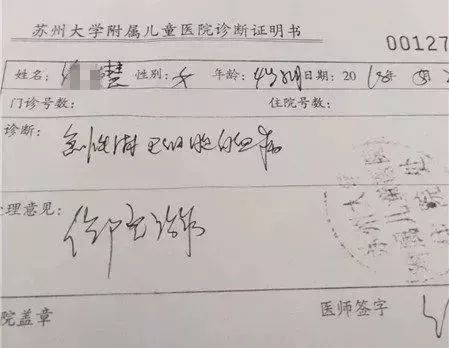 苏州大学附属儿童医院诊断证明书
00127
姓名: 慧 性别: 女 年龄: 4岁 日期: 2018年
门诊号数: 住院号数:
诊断: 急性淋巴细胞白血病
处理意见:
住院治疗
院盖章 医师签字